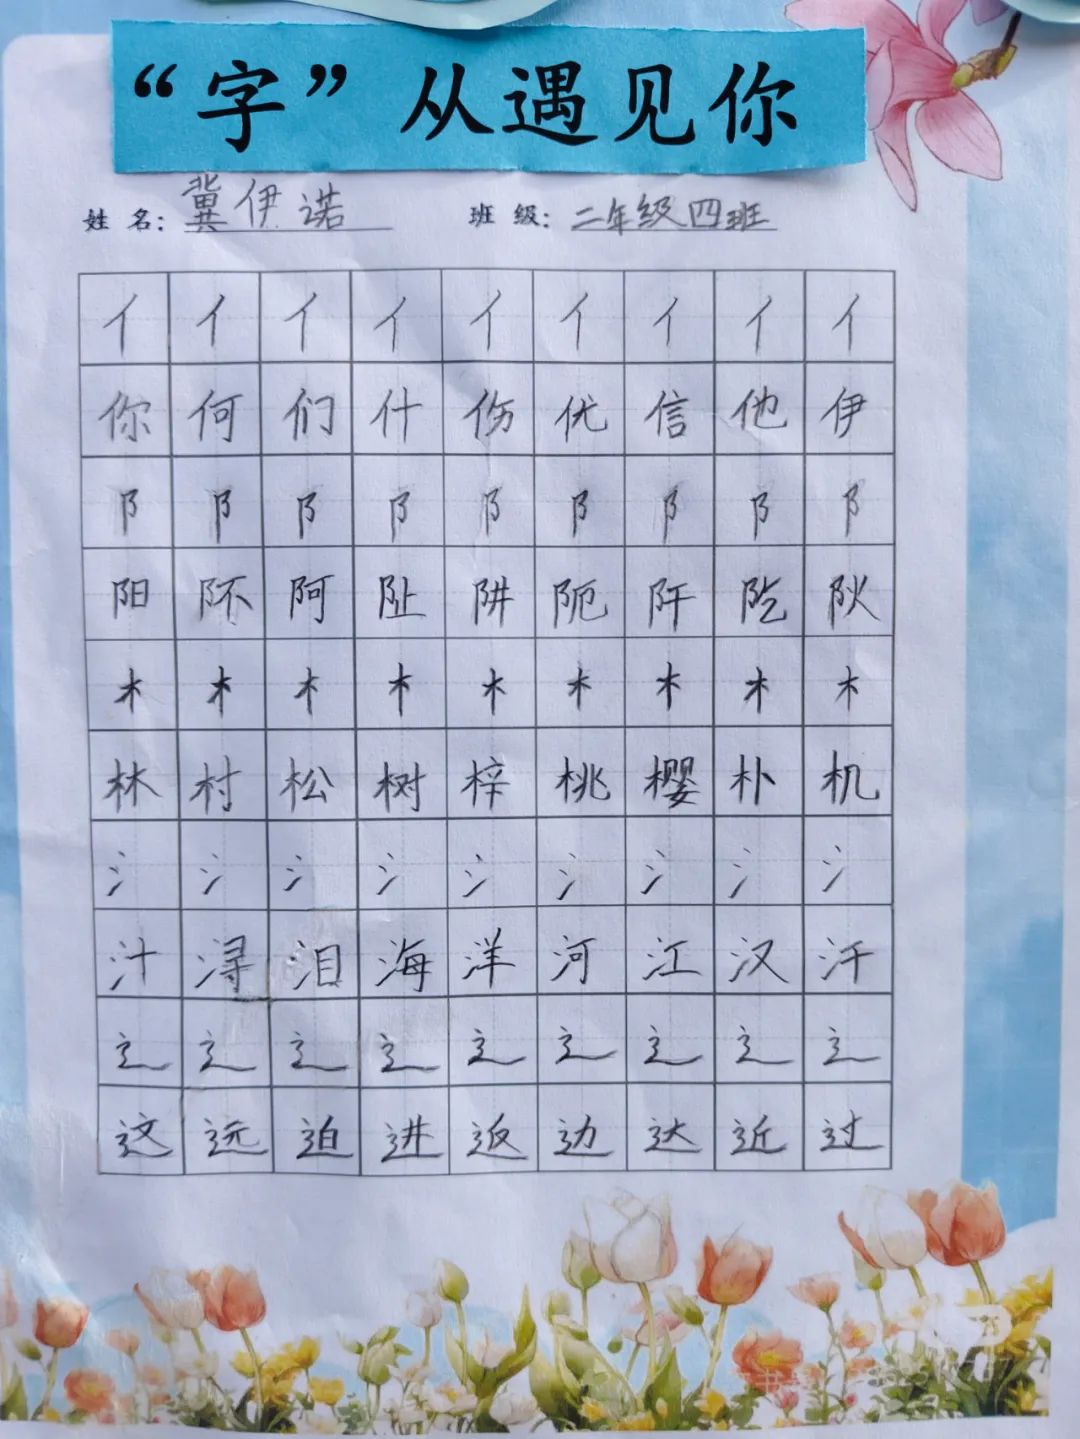 “字”从遇见你
姓名：冀伊诺 班级：二年级四班
亻 亻 亻 亻 亻 亻 亻 亻 亻
你 何 们 什 伤 优 信 他 伊
阝 阝 阝 阝 阝 阝 阝 阝 阝
阳 阫 阿 阯 阱 阨 阡 阣 阦
木 木 木 木 木 木 木 木 木
林 村 松 树 梓 桃 樱 朴 机
氵 氵 氵 氵 氵 氵 氵 氵 氵
汁 浔 泪 海 洋 河 江 汉 汗
辶 辶 辶 辶 辶 辶 辶 辶 辶
这 远 迫 进 返 边 达 近 过